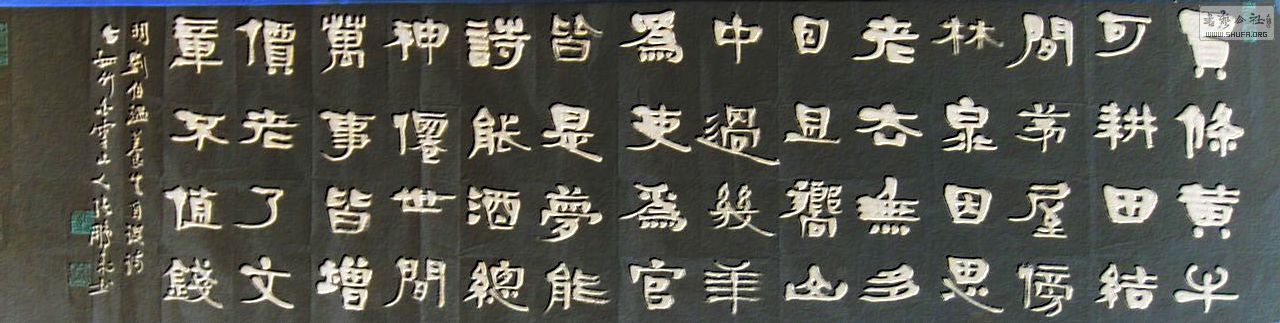 買條黃牛
可耕田結
間茅屋傍
林泉因思
老去無多
日且嚮山
中過幾年
為吏為官
皆是夢能
詩能酒總
神僊世間
萬事皆增
價老了文
章不值錢
明劉伯溫養生自
山人
公社
WWW.SHUFA.ORG